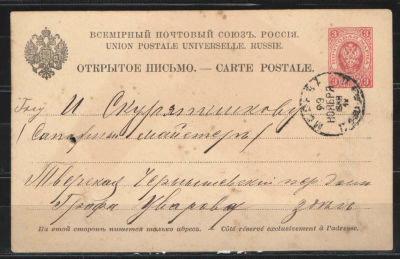 ВСЕМІРНЫЙ ПОЧТОВЫЙ СОЮЗЪ. РОССІЯ.
UNION POSTALE UNIVERSELLE. RUSSIE.
ОТКРЫТОЕ ПИСЬМО. — CARTE POSTALE.
3 3
3 3
МОСКВА
НОЯБРЯ
И.
Сапожн майстеръ
Тверская Чернышевскій пер домъ
Графа Уварова здѣсь
На этой сторонѣ пишется только адресъ. — Côté réservé exclusivement à l'adresse.